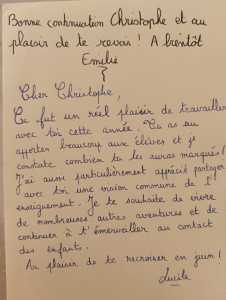 Bonne continuation Christophe et au
plaisir de te revoir ! A bientôt
Emilie
Cher Christophe,
Ce fut un réel plaisir de travailler
avec toi cette année. Tu as su
apporter beaucoup aux élèves et je
constate combien tu les auras marqués !
J'ai aussi particulièrement apprécié partager
avec toi une vision commune de l'
enseignement. Je te souhaite de vivre
de nombreuses autres aventures et de
continuer à t'émerveiller au contact
des enfants.
Au plaisir de te recroiser en juin !
Lucile